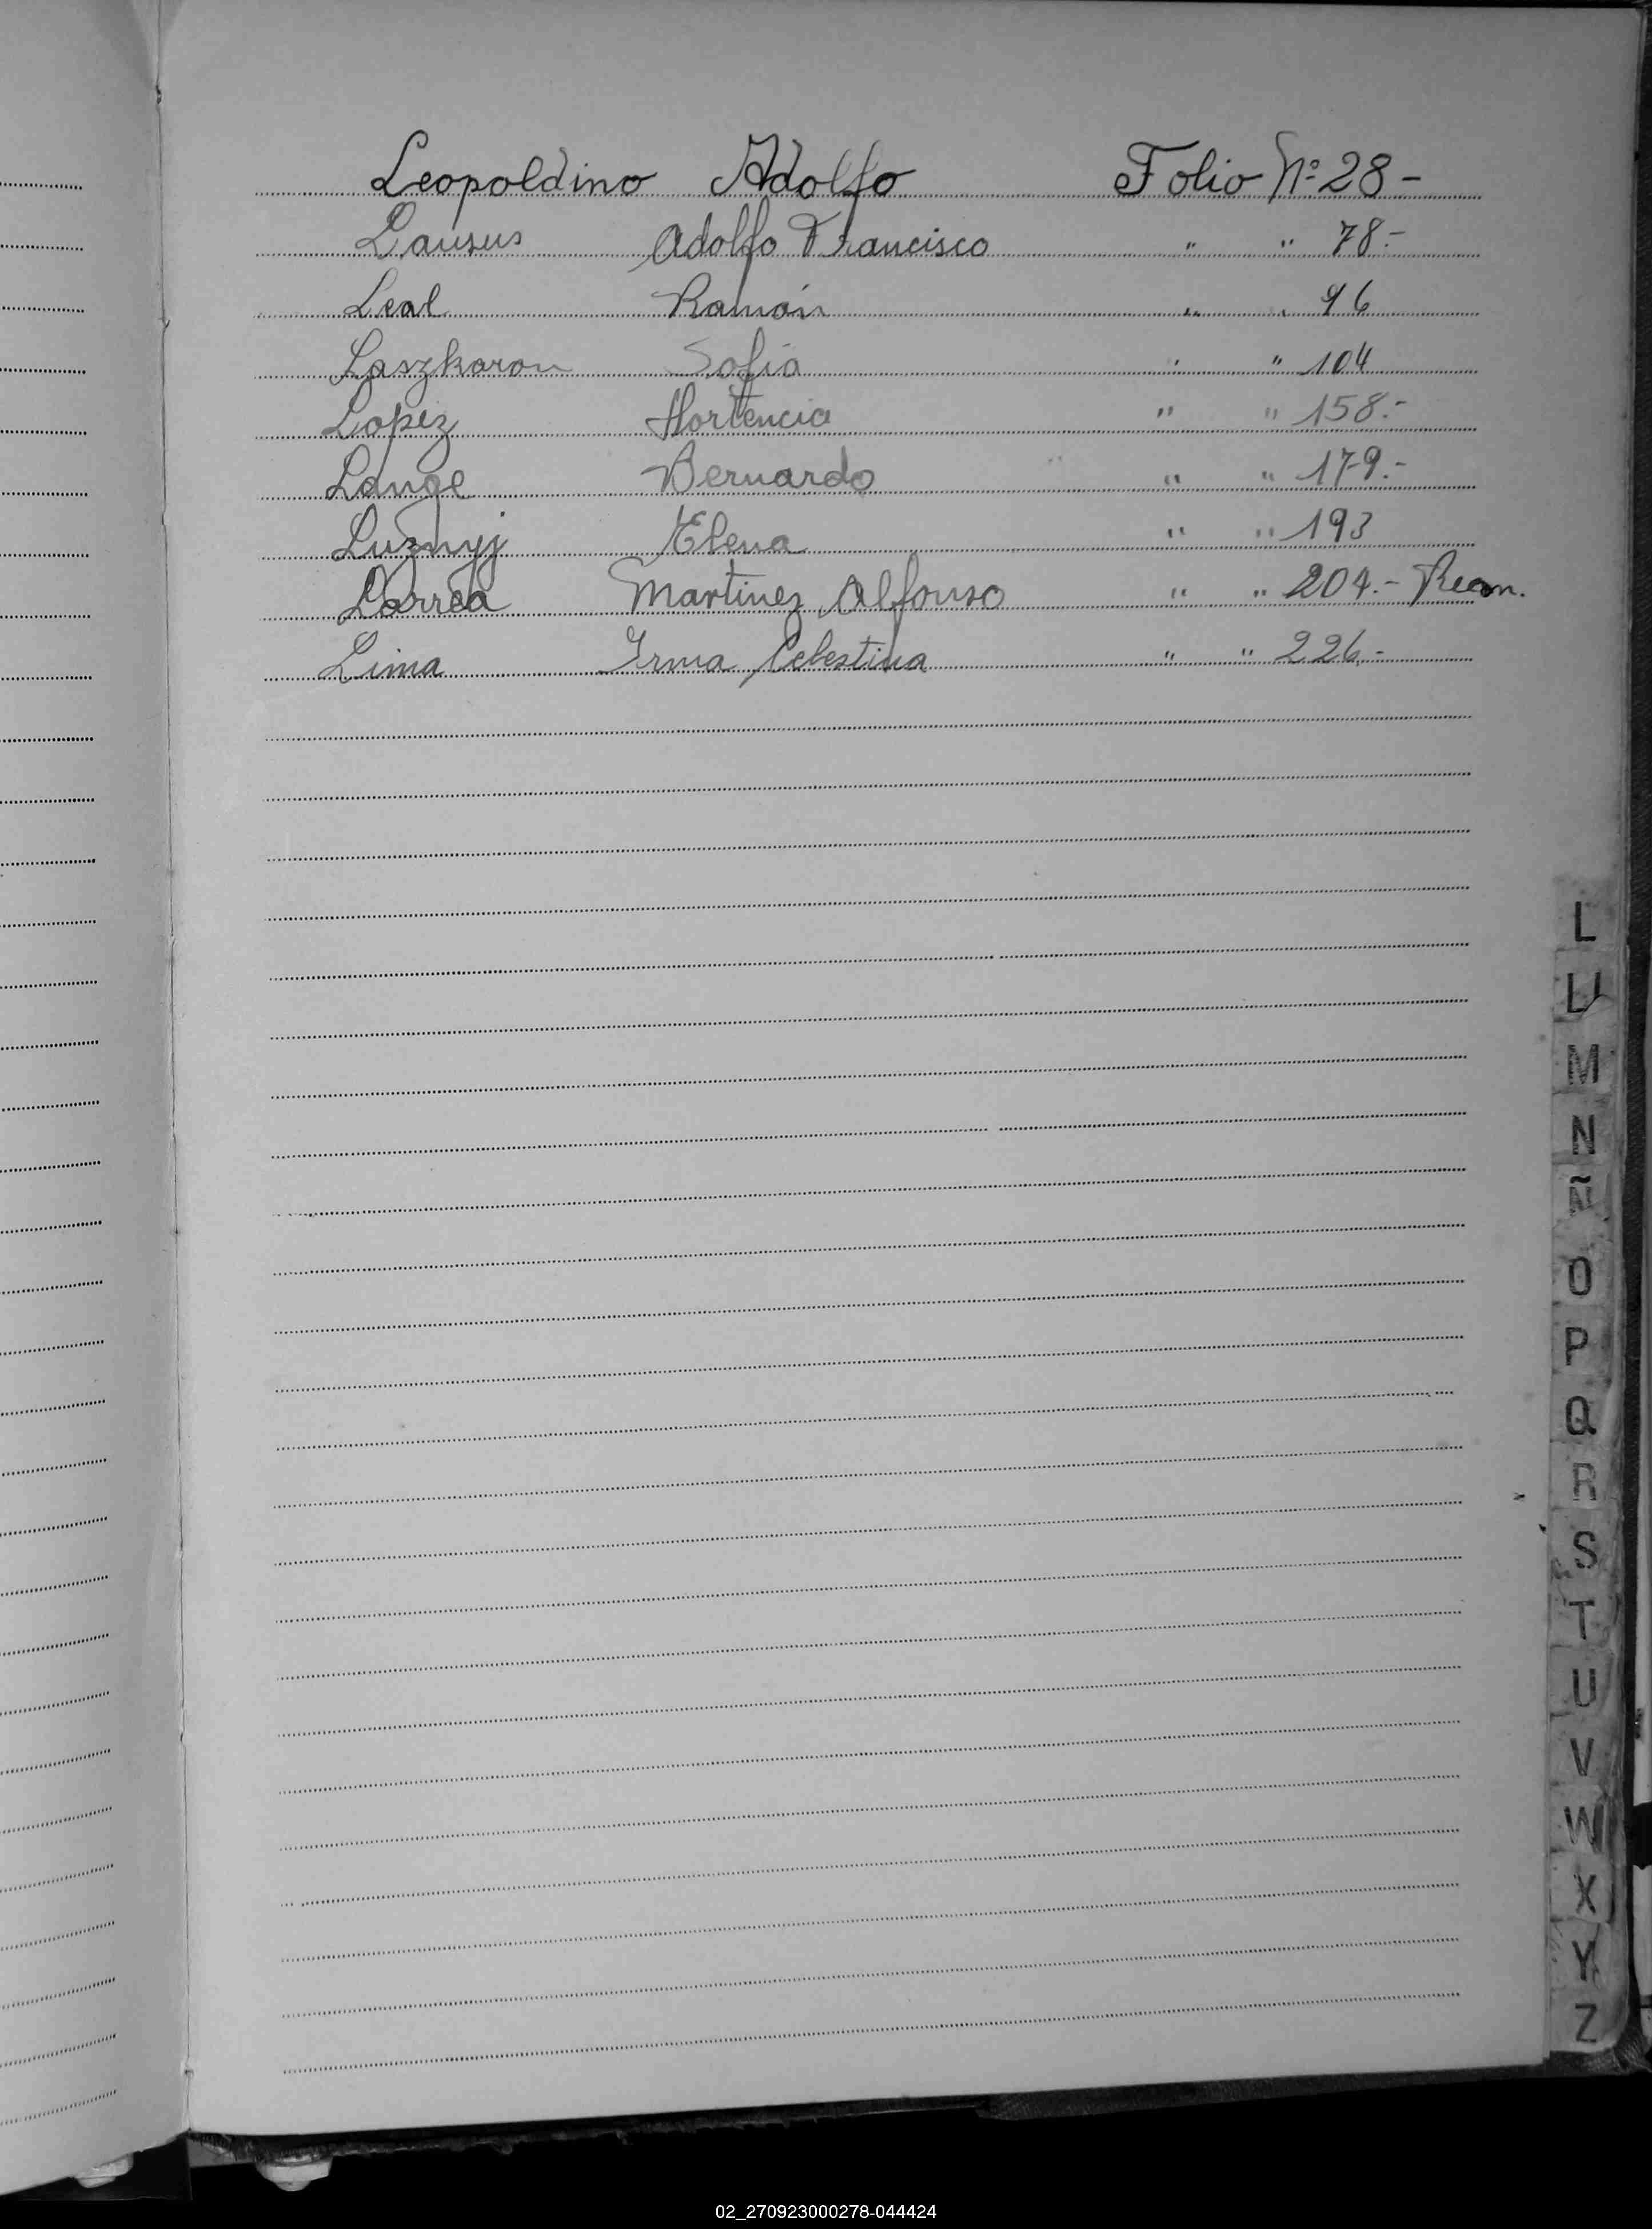 Leopoldino Adolfo Folio Nº 28-
Lausus Adolfo Francisco " " 78.-
Leal Ramón " " 96
Laszkaron Sofia " " 104
Lopez Hortencia " " 158.-
Lange Bernardo " " 179.-
Luznyj Elena " " 193
Larrea Martinez Alfonso " " 204.-
Lima Irma Celestina " " 226.-
L
LL
M
N
Ñ
O
P
Q
R
S
T
U
V
W
X
Y
Z
02_270923000278-044424